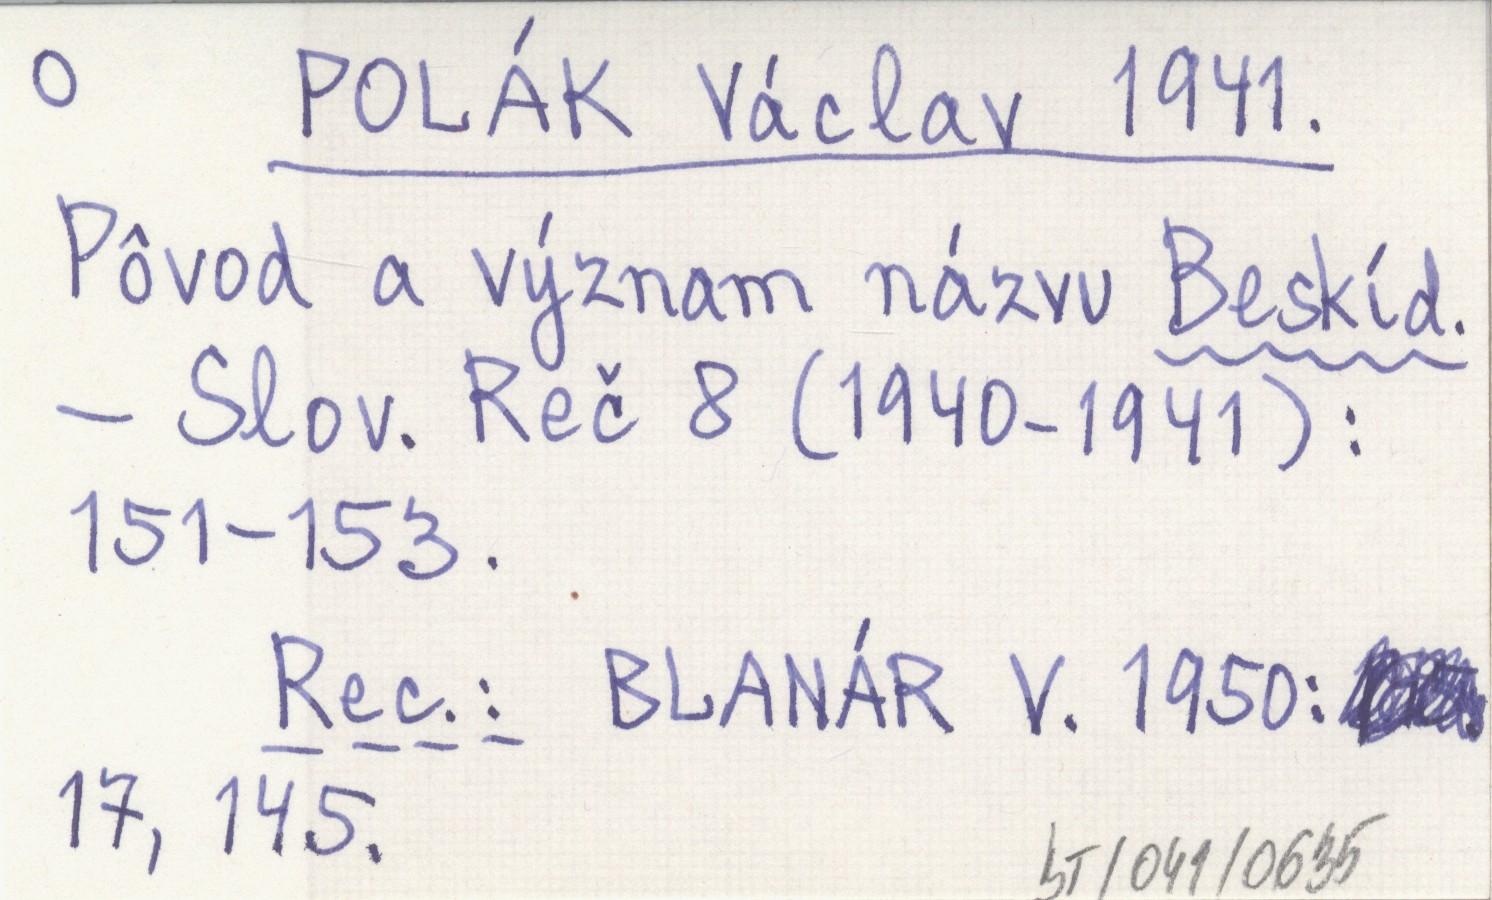 O POLÁK Václav 1941.
Pôvod a význam názvu Beskíd.
– Slov. Reč 8 (1940-1941):
151-153.
Rec.: BLANÁR V. 1950:
17, 145.
/041/0635